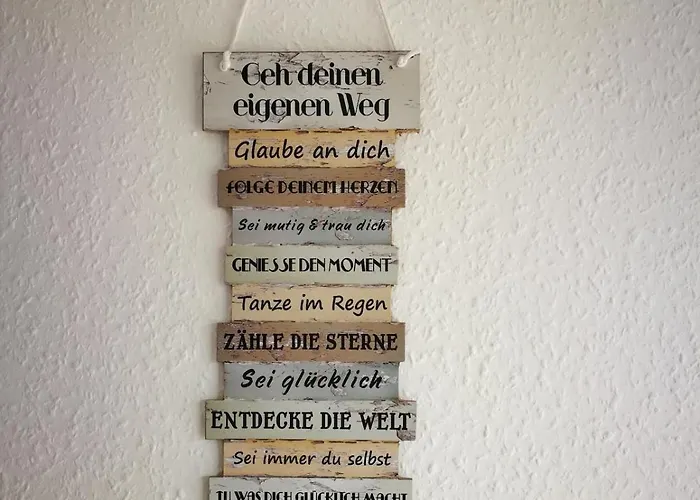 Geh deinen
eigenen Weg
Glaube an dich
FOLGE DEINEM HERZEN
Sei mutig & trau dich
GENIESSE DEN MOMENT
Tanze im Regen
ZÄHLE DIE STERNE
Sei glücklich
ENTDECKE DIE WELT
Sei immer du selbst
TU WAS DICH GLÜCKLICH MACHT